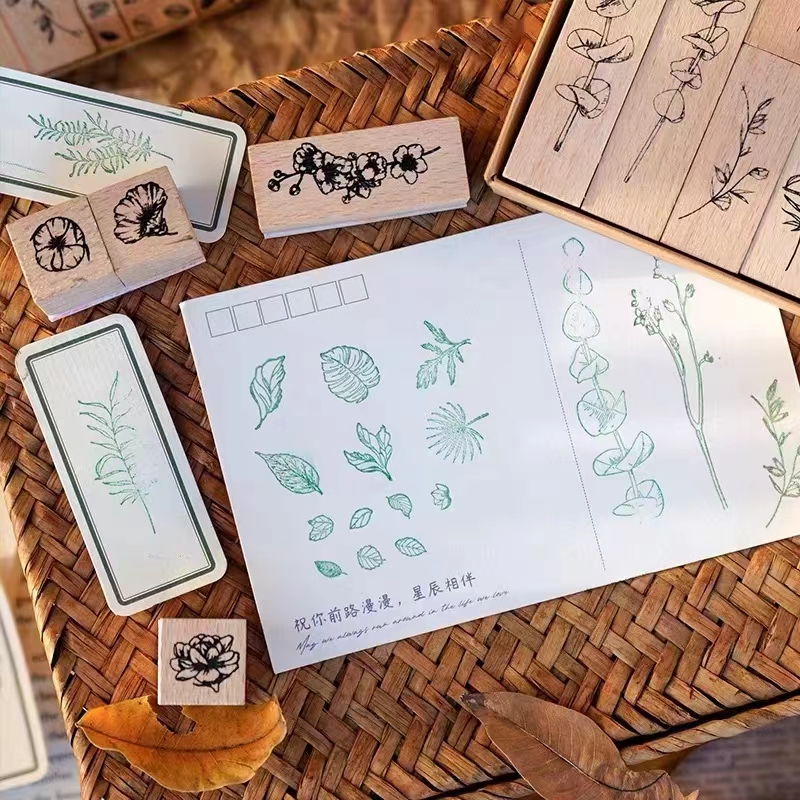 祝你前路漫漫，星辰相伴
May we always own around in the life we love